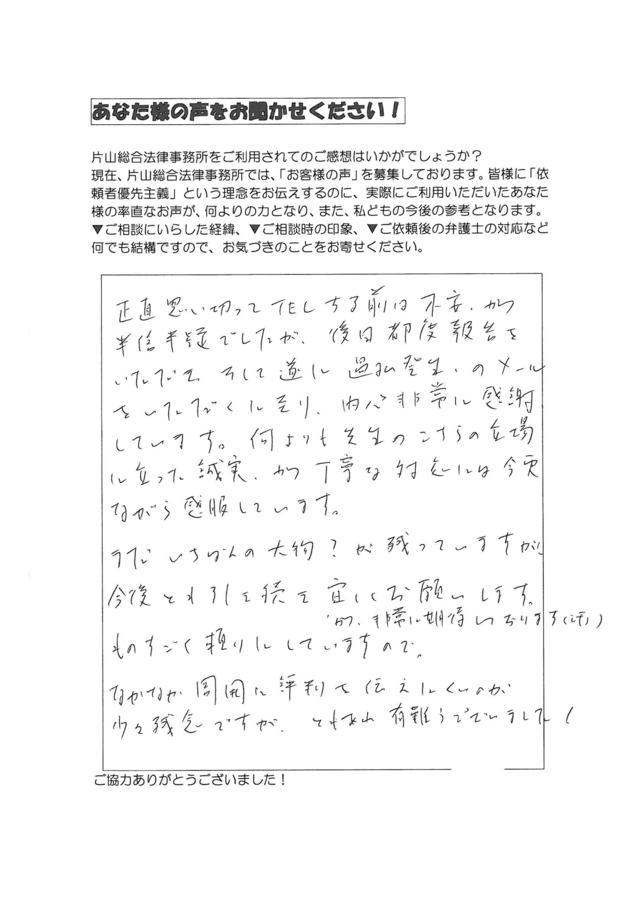 あなた様の声をお聞かせください！
片山総合法律事務所をご利用されてのご感想はいかがでしょうか？
現在、片山総合法律事務所では、「お客様の声」を募集しております。皆様に「依
頼者優先主義」という理念をお伝えするのに、実際にご利用いただいたあなた
様の率直なお声が、何よりの力となり、また、私どもの今後の参考となります。
▼ご相談にいらした経緯、▼ご相談時の印象、▼ご依頼後の弁護士の対応など
何でも結構ですので、お気づきのことをお寄せください。
正直思い切って TELする前は不安、かつ
半信半疑でしたが、後日都度報告を
いただき そして遂に過払発生、のメール
をいただくに至り、内心非常に感謝
しています。何よりも先生のこちらの立場
に立った誠実、かつ丁寧な対応には今更
ながら感服しています。
まだ いちばんの大物？が残っていますが、
今後とも引き続き宜しくお願いします。
かつ、非常に期待しております(汗)
ものすごく頼りにしていますので。
なかなか周囲に評判を伝えにくいのが
少々残念ですが、ともあれ 有難うございました！
ご協力ありがとうございました！